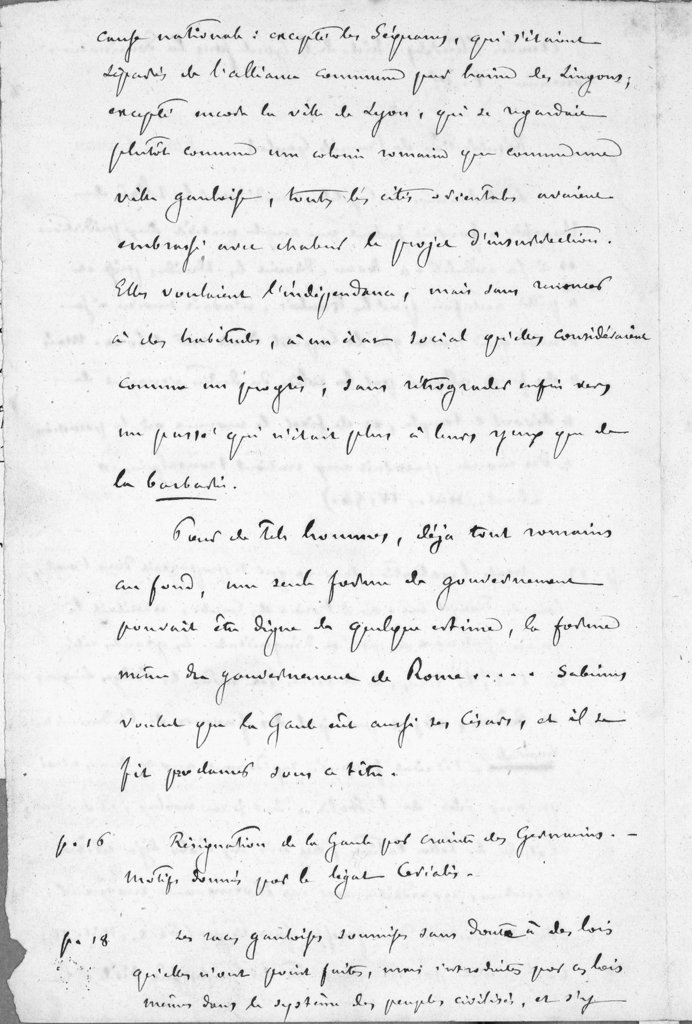 cause nationale : excepté les Séquanes, qui s'étaient
séparés de l'alliance commune par haine des Lingons ;
excepté encore la ville de Lyon, qui se regardait
plutôt comme une colonie romaine que comme une
ville gauloise, toutes les cités orientales avaient
embrassé avec chaleur le projet d'insurrection.
Elles voulaient l'indépendance, mais sans renoncer
à des habitudes, à un état social qu'elles considéraient
comme un progrès, sans rétrograder enfin vers
un passé qui n'était plus à leurs yeux que de
la barbarie.
Pour de tels hommes, déjà tout romains
au fond, une seule forme de gouvernement
pouvait être digne de quelque estime, la forme
même du gouvernement de Rome..... Sabinus
voulut que la Gaule eût aussi ses Césars, et il se
fit proclamer sous ce titre.
p. 16 Résignation de la Gaule par crainte des Germains. —
Motifs donnés par le légat Cerialis. -
p. 18 Les races gauloises soumises sans doute à des lois
qu'elles n'ont point faites, mais introduites par ces lois
mêmes dans le système des peuples civilisés, et s'y